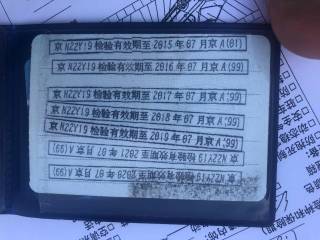 京 N2ZY19 检验有效期至 2015 年 07 月京 A(01)
京 N2ZY19 检验有效期至 2016 年 07 月京 A(99)
京 N2ZY19 检验有效期至 2017 年 07 月京 A(99)
京 N2ZY19 检验有效期至 2018 年 07 月京 A(99)
京 N2ZY19 检验有效期至 2019 年 07 月京 A(99)
京 N2ZY19 检验有效期至 2021 年 07 月京 A(99)
京 N2ZY19 检验有效期至 2020 年 07 月京 A(99)